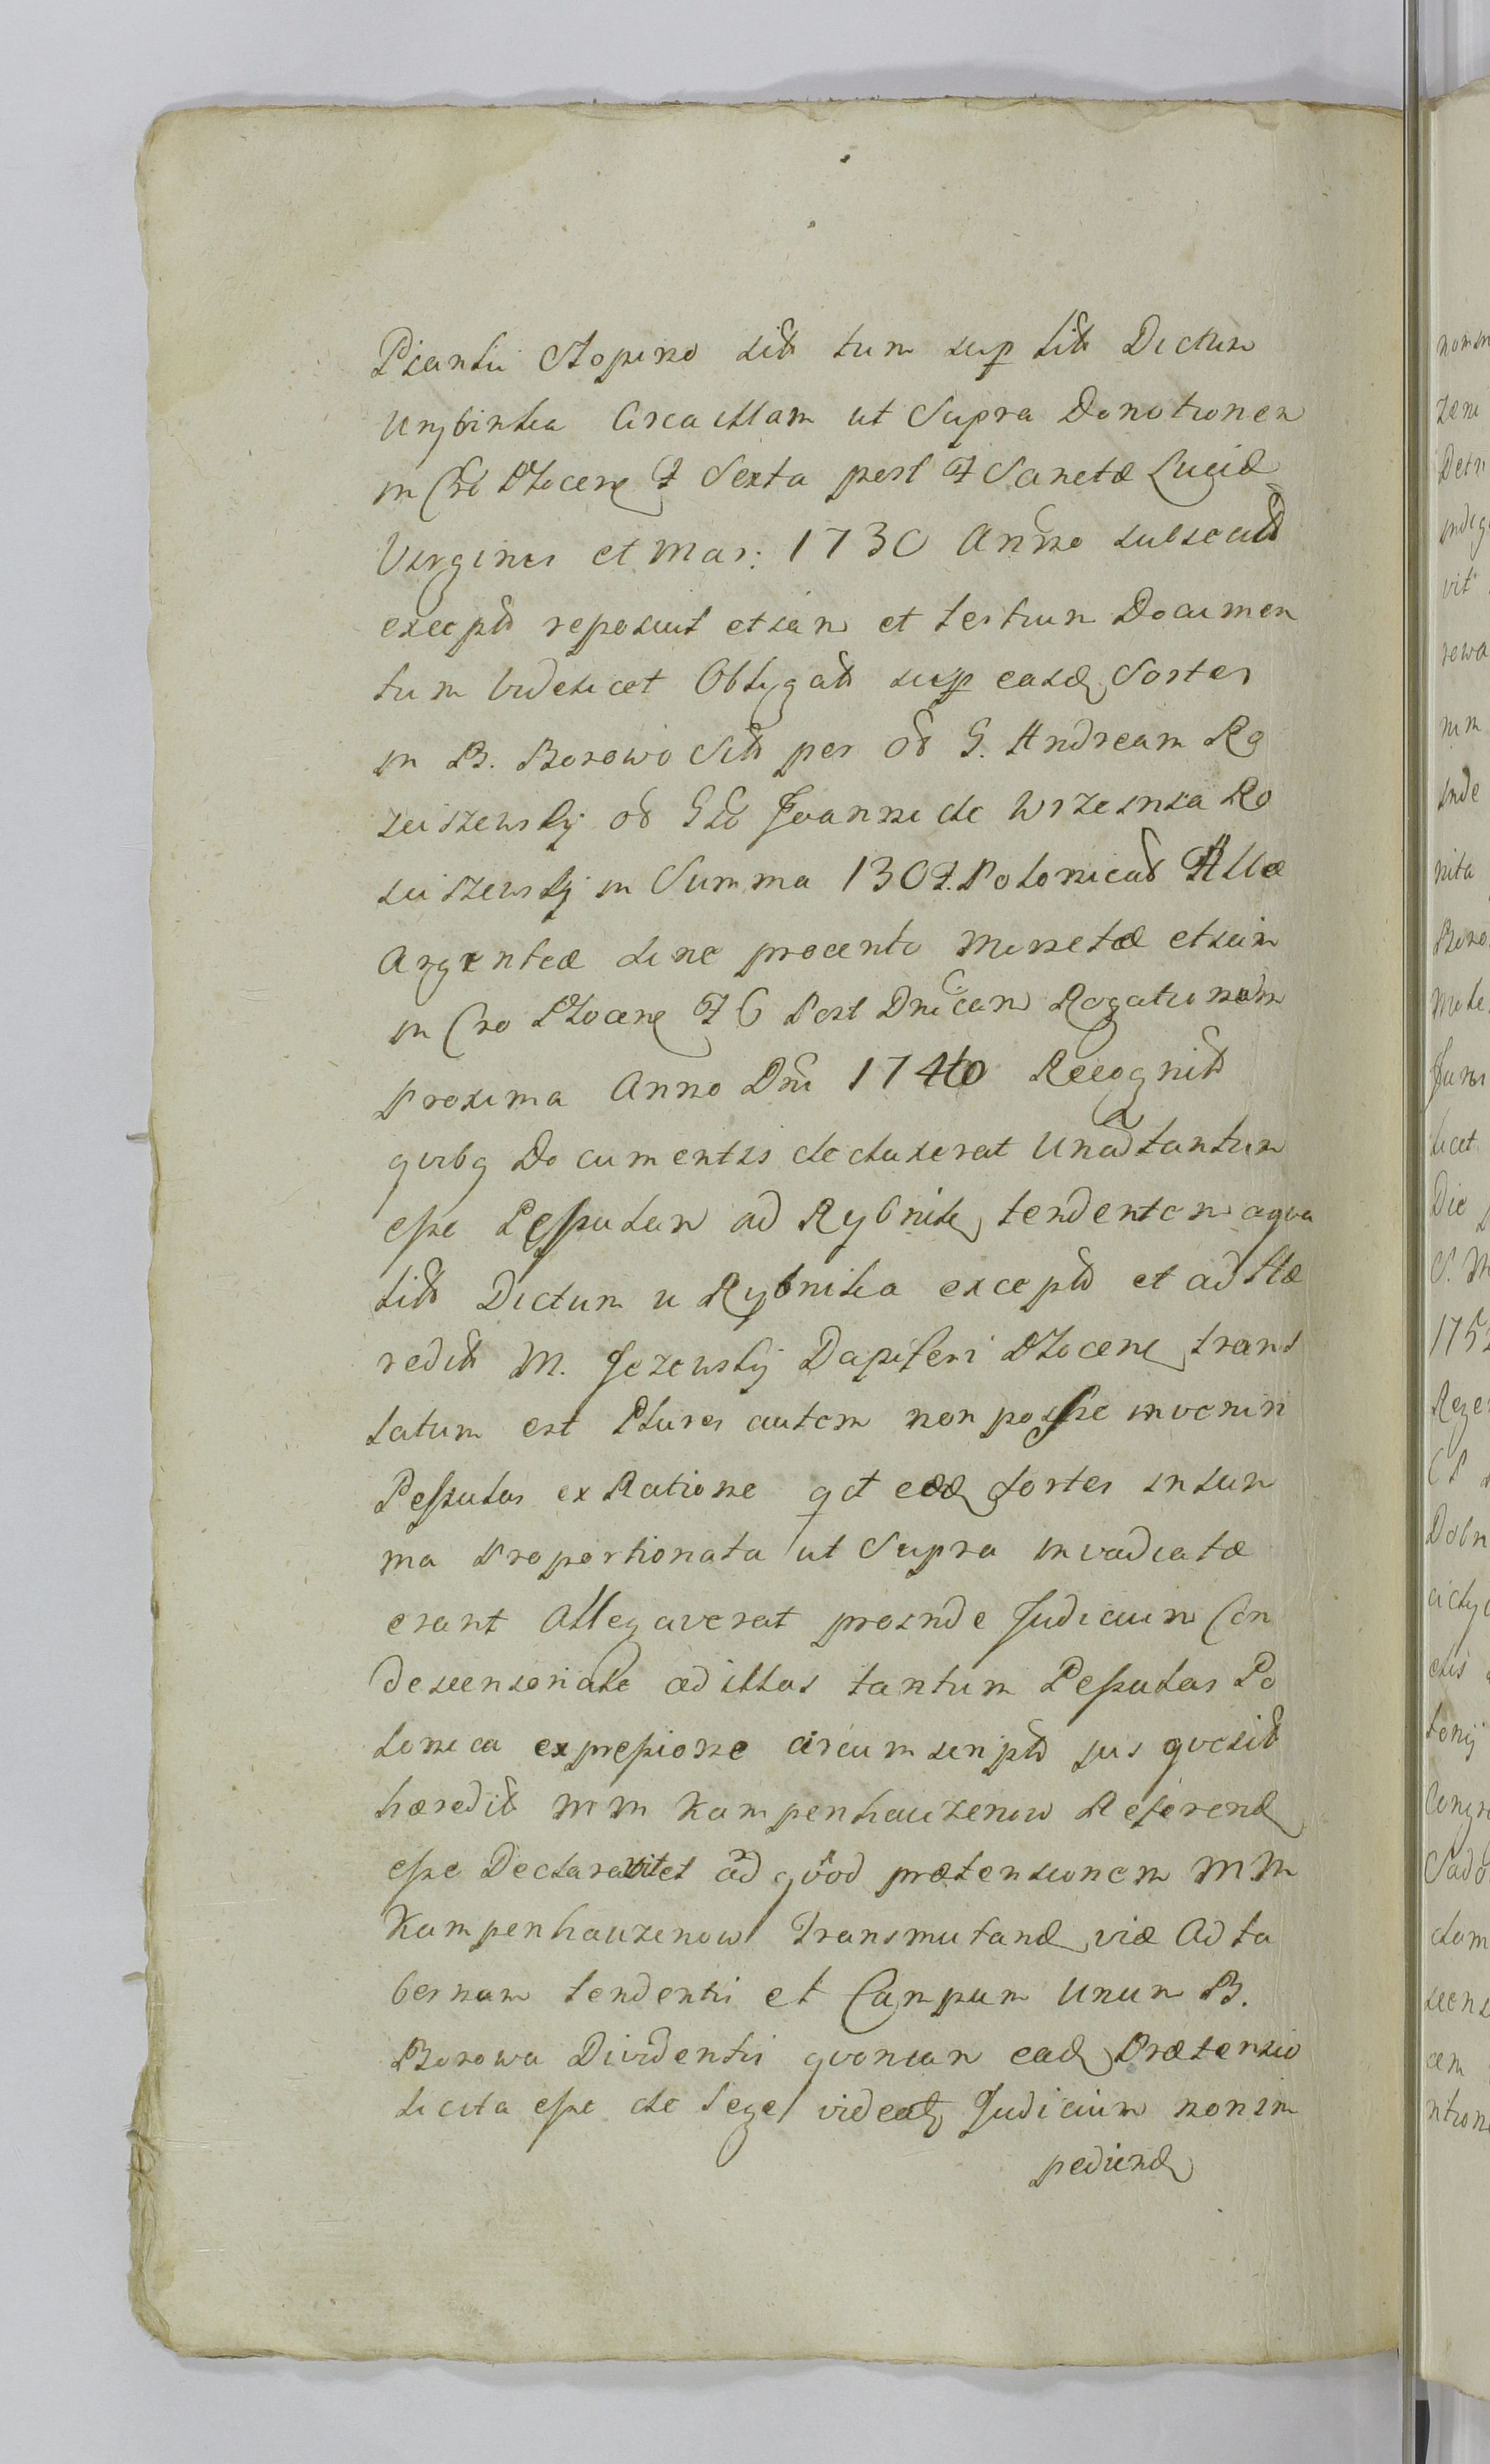 Piantii Stopino sitt tum sup sitt Dictum
Urybinka Circa illam ut Supra Donotionem
in Cro Plocen F Sexta post F Sanctæ Luciæ
Virginis et Mar: 1730 Anno subsecutt
exceptt reposuit etiam et tertium Documen
tum Videlicet Obligatt sup easd Sortes
in B. Borowo Sitt per od G. Andream Ro
sciszewsky od Gso Joanni de Wrzesnia Ro
sciszewsky in Summa 130 F. Polonicad Albæ
Argenteæ sine procento Monetæ etiam
in Cro Plocen F 6 Post Dnicam Rogationum
Proxima Anno Dni 1740 Recognitt
qvibq Documentis deduxerat Unad tantum
esse Pessulam ad Rybnik tendentem aqva
sitt Dictum u Rybnika exceptt et ad Hæ
reditt M. Jezewsky Dapiferi Plocen trans
latum est Plures autem non posse inveniri
Pessulas ex Ratione qd eæd sortes in sum
ma Proportionata ut Supra invadiatæ
erant Allegaverat proinde Judicium Con
descensoriale ad illas tantum Pessulas Po
lonica expressione circumscriptt jus qvesitt
hæreditt MM Kampenhauzenow Referend
esse Declaravit et ad qvod prætensionem MM
Kampenhauzenow Transmutand viæ Ad ta
bernam tendentis et Campum Unum B.
Borowa Dividentis qvoniam ead Prætensio
licita esse de Lege videatq Judicium non im
pediend
nomin
rewa
inde
nita
Boro
licet
Die
Dobn
dom
cem